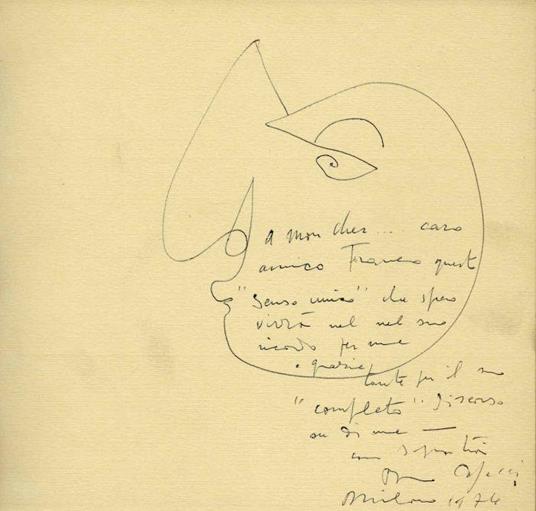 a mon cher... caro
amico Franco questo
"senso unico" che spero
vivrà nel nel suo
ricordo per me
grazie
tante per il suo
"completo" discorso
su di me —
con simpatia
Milano 1974